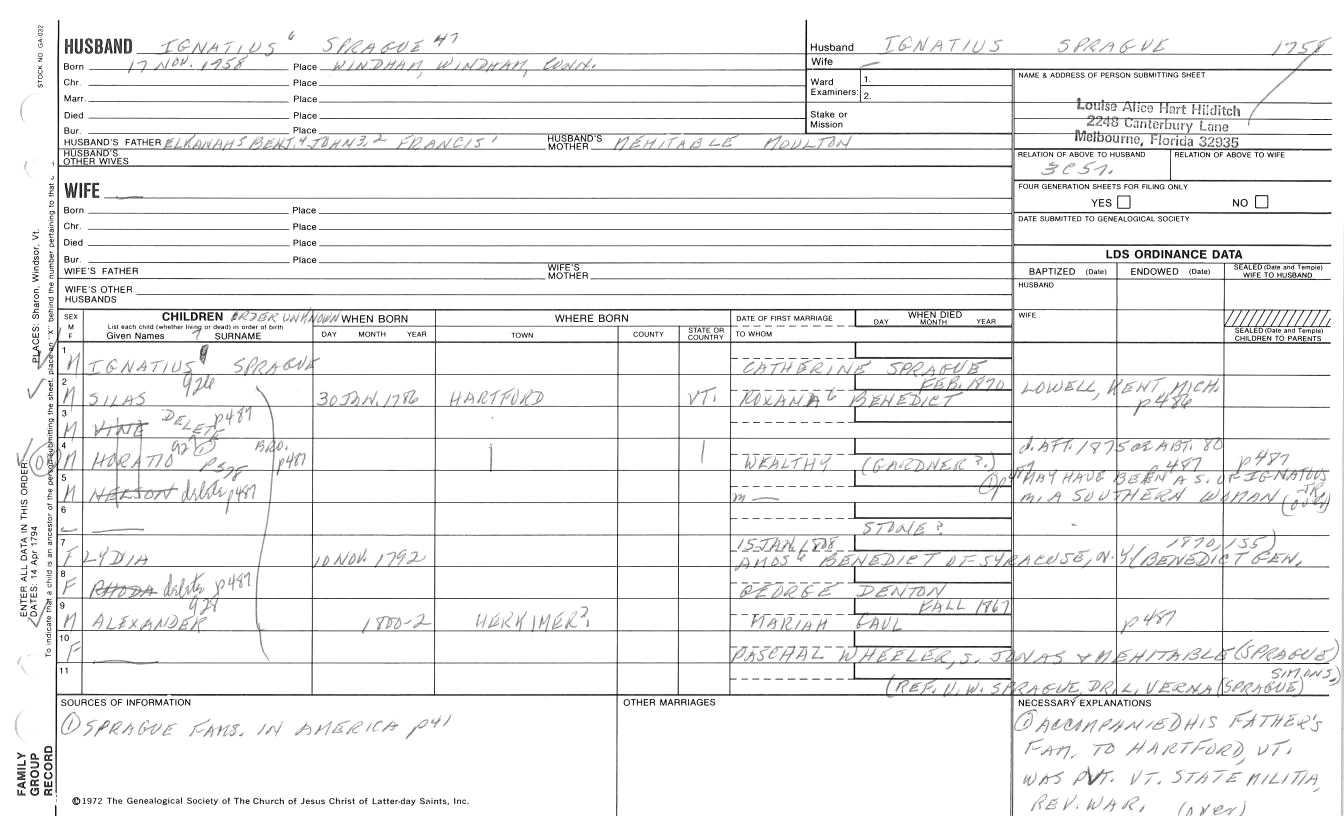 STOCK NO. GA-032
HUSBAND IGNATIUS 6 SPRAGUE 47
Born 17 NOV. 1758 Place WINDHAM, WINDHAM, CONN.
Chr. Place
Marr. Place
Died Place
Bur. Place
HUSBAND'S FATHER ELKANAH5 BENJ.4 JOHN3,2 FRANCIS1 HUSBAND'S MOTHER MEHITABLE MOULTON
HUSBAND'S OTHER WIVES
Husband IGNATIUS SPRAGUE 1758
Wife
Ward Examiners: 1.
2.
Stake or Mission
NAME & ADDRESS OF PERSON SUBMITTING SHEET
Louise Alice Hart Hilditch
2248 Canterbury Lane
Melbourne, Florida 32935
RELATION OF ABOVE TO HUSBAND RELATION OF ABOVE TO WIFE
3C5r.
FOUR GENERATION SHEETS FOR FILING ONLY
YES NO
DATE SUBMITTED TO GENEALOGICAL SOCIETY
WIFE
Born Place
Chr. Place
Died Place
Bur. Place
WIFE'S FATHER WIFE'S MOTHER
WIFE'S OTHER HUSBANDS
LDS ORDINANCE DATA
BAPTIZED (Date) ENDOWED (Date) SEALED (Date and Temple) WIFE TO HUSBAND
HUSBAND
WIFE
SEALED (Date and Temple) CHILDREN TO PARENTS
SEX M F
CHILDREN ORDER UNKNOWN
List each child (whether living or dead) in order of birth
Given Names 7 SURNAME
WHEN BORN
DAY MONTH YEAR
WHERE BORN
TOWN COUNTY STATE OR COUNTRY
DATE OF FIRST MARRIAGE
TO WHOM
WHEN DIED
DAY MONTH YEAR
1 M IGNATIUS SPRAGUE CATHERINE SPRAGUE
926 FEB. 1870
2 M SILAS 30 JAN. 1786 HARTFORD VT. ROXANA6 BENEDICT LOWELL, KENT, MICH.
p486
3 M VINE DELETE p487
4 M HORATIO 927 p528 BRO. p487 WEALTHY (GARDNER?) d. AFT. 1875 OR ABT. 80
p487 p487
5 M NELSON delete p487 m — MAY HAVE BEEN A S. OF IGNATIUS JR
m. A SOUTHERN WOMAN (over)
6 STONE?
7 F LYDIA 10 NOV. 1792 15 JAN. 1808 1870, 155)
AMOS6 BENEDICT OF SYRACUSE, N.Y./BENEDICT GEN.
8 F RHODA delete p487 GEORGE DENTON
928 FALL 1867
9 M ALEXANDER 1800-2 HERKIMER? MARIAH FAUL p487
10 F PASCHAL WHEELER, S. JONAS & MEHITABLE (SPRAGUE)
SIMONS,)
11 (REF. U. W. SPRAGUE, DR. L. VERNA (SPRAGUE)
SOURCES OF INFORMATION
① SPRAGUE FAMS. IN AMERICA p41
OTHER MARRIAGES
NECESSARY EXPLANATIONS
① ACCOMPANIED HIS FATHER'S
FAM. TO HARTFORD, VT.
WAS PVT. VT. STATE MILITIA,
REV. WAR. (over)
©1972 The Genealogical Society of The Church of Jesus Christ of Latter-day Saints, Inc.
FAMILY GROUP RECORD
ENTER ALL DATA IN THIS ORDER:
DATES: 14 Apr 1794
PLACES: Sharon, Windsor, Vt.
To indicate that a child is an ancestor of the person submitting the sheet, place an "X" behind the number pertaining to that